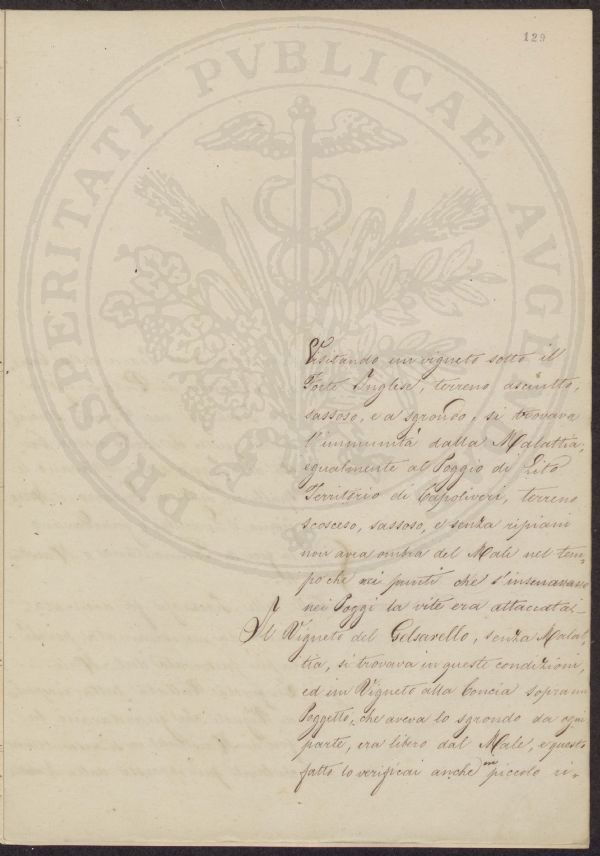 129
Visitando un vigneto sotto il
Forte Inglese, terreno asciutto,
sassoso, e a sgrondo, si trovava
l'immunità dalla Malattia,
egualmente al Poggio di Lito
Territorio di Capoliveri, terreno
scosceso, sassoso, e senza ripiani
non avea ombra del Male nel tem=
po che nei punti che s'insenavano
nei Poggi la vite era attaccata.—
Il Vigneto del Gelsarello, senza Malat=
tia, si trovava in queste condizioni,
ed un Vigneto alla Concia sopra un
Poggetto, che aveva lo sgrondo da ogni
parte, era libero dal Male, e questo
fatto lo verificai anche in piccolo ri=
PROSPERITATI PVBLICAE AVGE